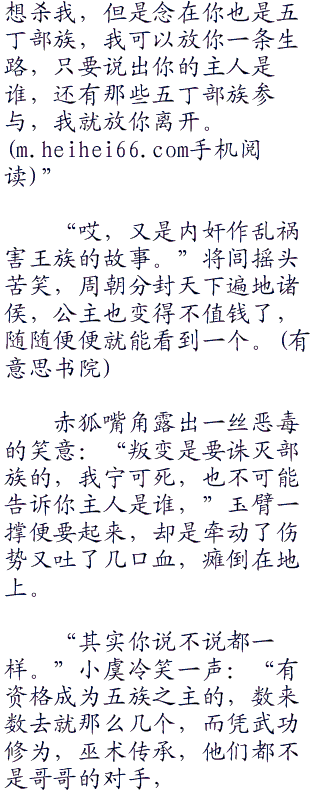 想杀我，但是念在你也是五
丁部族，我可以放你一条生
路，只要说出你的主人是
谁，还有那些五丁部族参
与，我就放你离开。
(m.heihei66.com手机阅
读)”
“哎，又是内奸作乱祸
害王族的故事。”将闾摇头
苦笑，周朝分封天下遍地诸
侯，公主也变得不值钱了，
随随便便就能看到一个。(有
意思书院)
赤狐嘴角露出一丝恶毒
的笑意：“叛变是要诛灭部
族的，我宁可死，也不可能
告诉你主人是谁，”玉臂一
撑便要起来，却是牵动了伤
势又吐了几口血，瘫倒在地
上。
“其实你说不说都一
样。”小虞冷笑一声：“有
资格成为五族之主的，数来
数去就那么几个，而凭武功
修为，巫术传承，他们都不
是哥哥的对手，